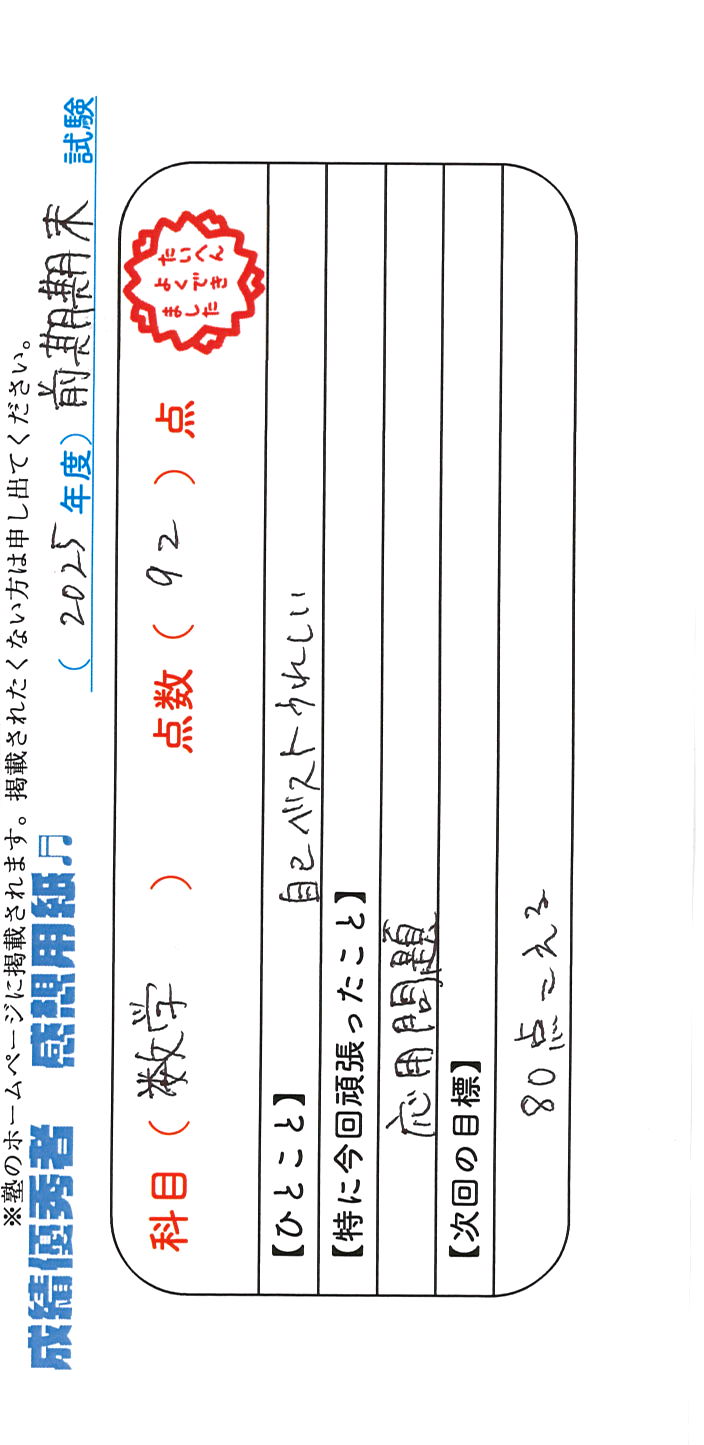 ※塾のホームページに掲載されます。掲載されたくない方は申し出てください。
成績優秀者 感想用紙♬ (2025年度) 前期期末 試験
科目(数学) 点数(92)点
たいへん
よくでき
ました
【ひとこと】 自己ベストうれしい
【特に今回頑張ったこと】
応用問題
【次回の目標】
80点こえる